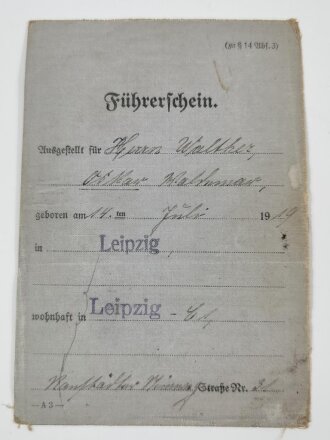 (Zu § 14 Abs. 3)
Führerschein.
Ausgestellt für Herrn Walther,
Oskar Waldemar,
geboren am 14. ten Juli 1919
in Leipzig,
wohnhaft in Leipzig - C1,
Ranstädter Steinweg Straße Nr.
— A 3 —